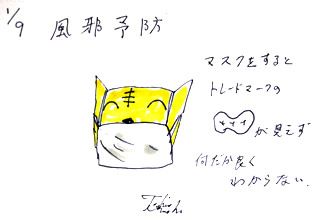 1/9 風邪予防
マスクをすると
トレードマークの
が見えず
何だか良く
わからない.